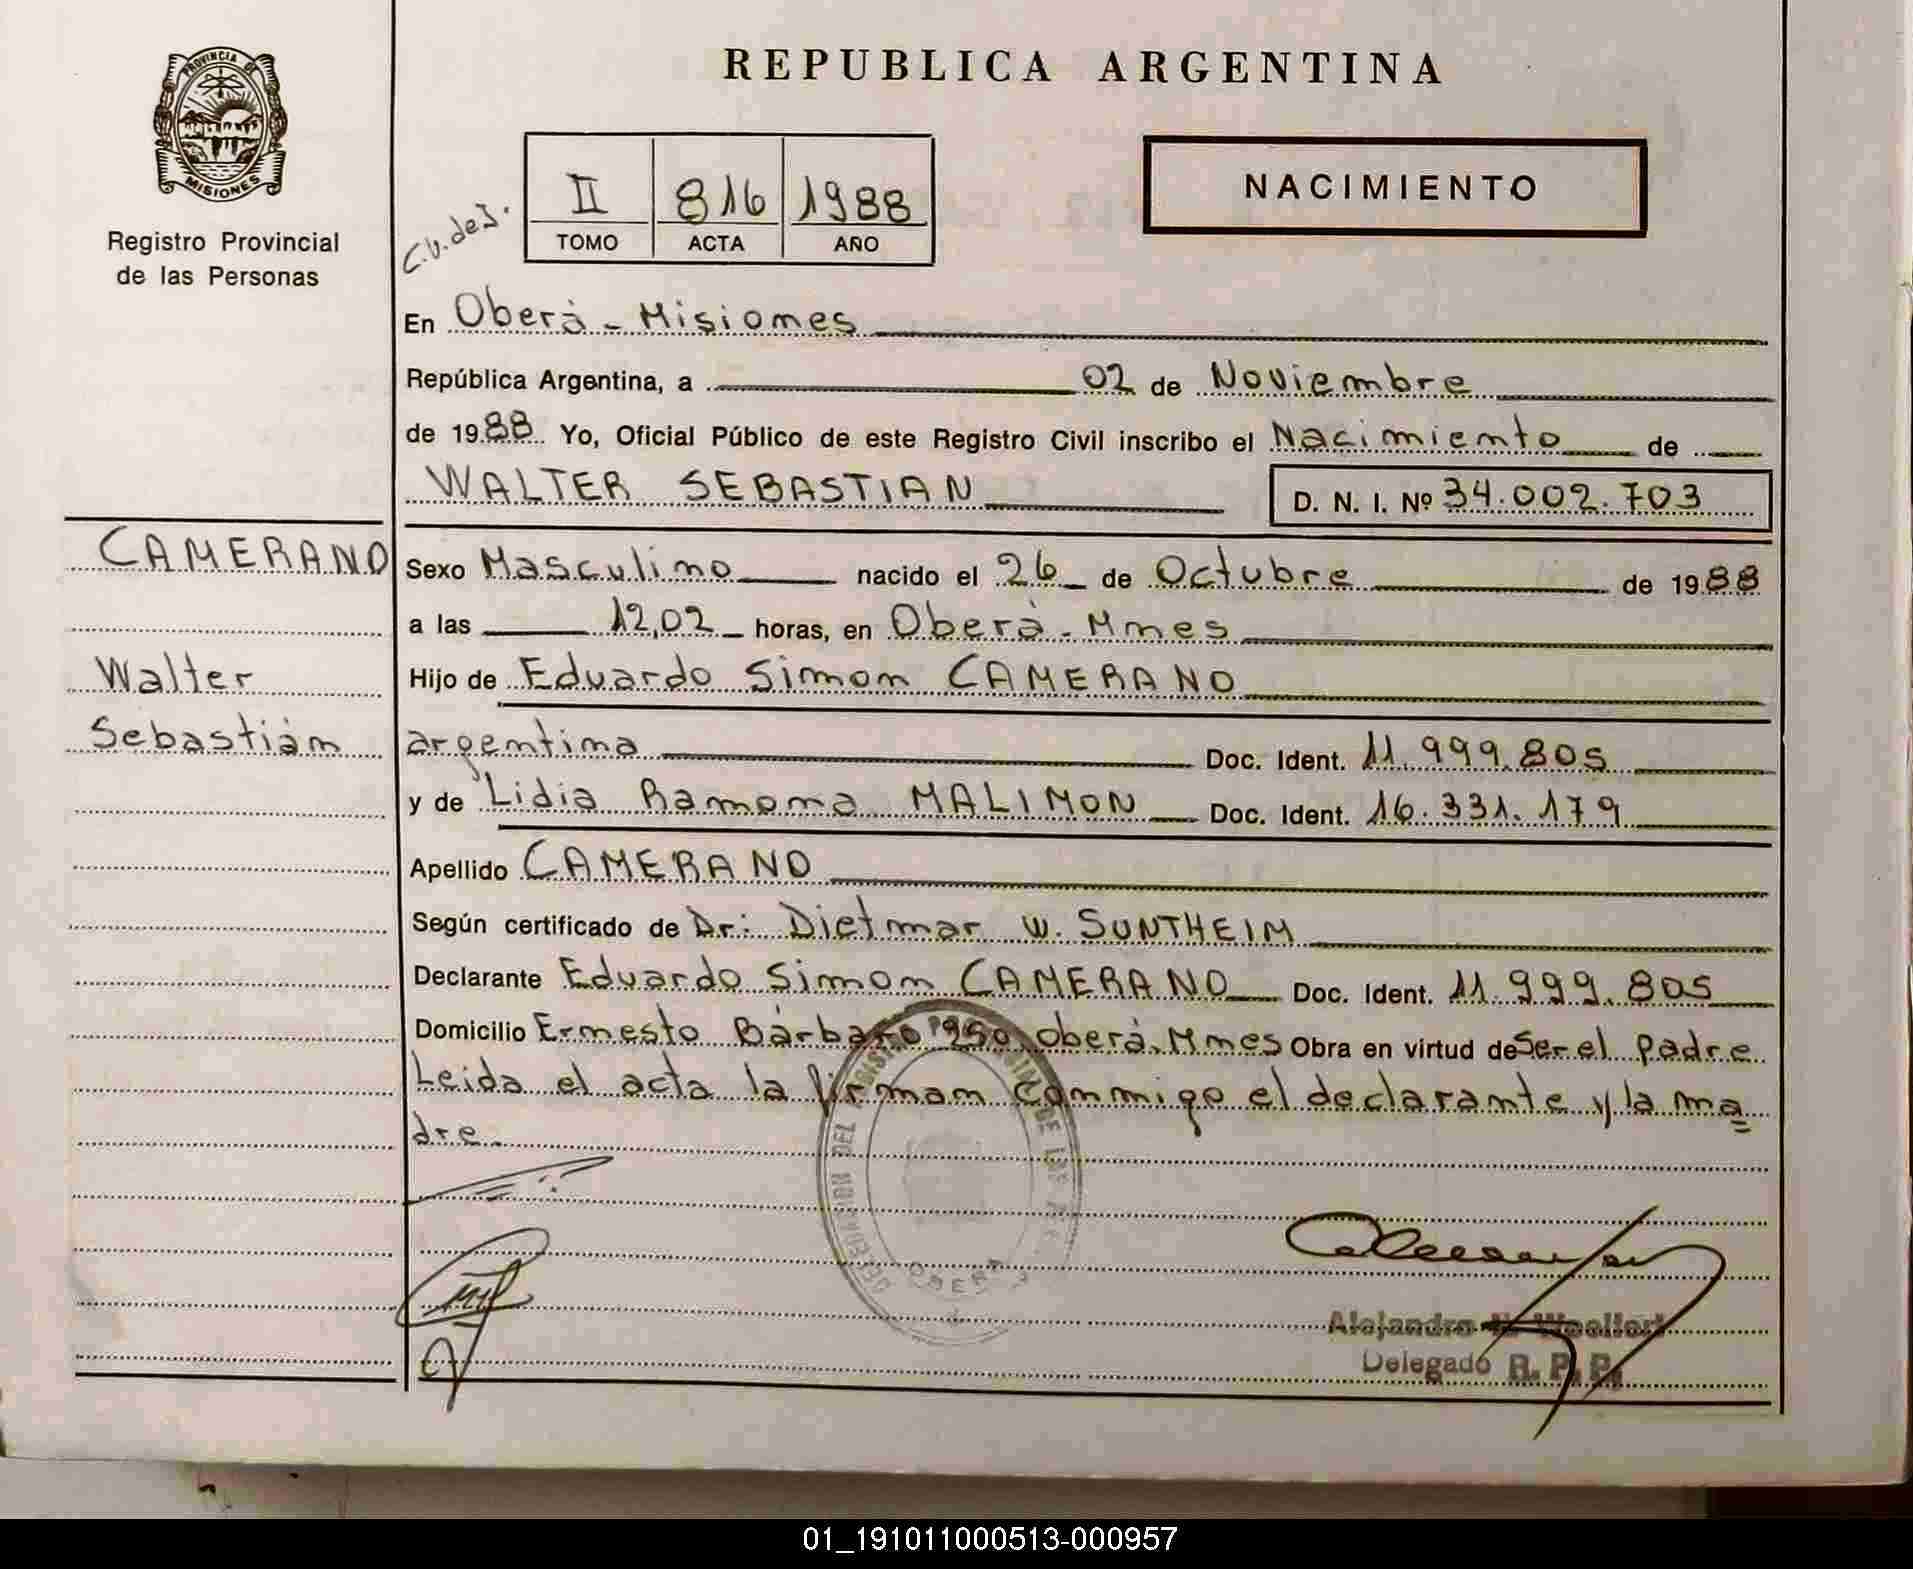 REPUBLICA ARGENTINA
PROVINCIA DE
MISIONES
Registro Provincial
de las Personas
NACIMIENTO
C.V. de I.
II 816 1988
TOMO ACTA AÑO
En Oberá - Misiones
República Argentina, a 02 de Noviembre
de 1988 Yo, Oficial Público de este Registro Civil inscribo el Nacimiento de
WALTER SEBASTIAN D. N. I. Nº 34.002.703
CAMERANO
Walter
Sebastián
Sexo Masculino nacido el 26 de Octubre de 1988
a las 12,02 horas, en Oberá - Mnes
Hijo de Eduardo Simon CAMERANO
argentina Doc. Ident. 11.999.805
y de Lidia Ramona MALIMON Doc. Ident. 16.331.179
Apellido CAMERANO
Según certificado de Dr: Dietmar W. SUNTHEIM
Declarante Eduardo Simon CAMERANO Doc. Ident. 11.999.805
Domicilio Ernesto Bárbaro 950 Oberá, Mnes Obra en virtud de Ser el padre
Leida el acta la firman conmigo el declarante y la ma
dre.
DELEGACION DEL REGISTRO PROVINCIAL DE LAS
OBERA
Alejandro
Delegado R. P. P.
01_191011000513-000957